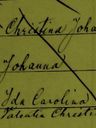 Christina Joha
Johanna
Ida Carolina
Valentin Christi